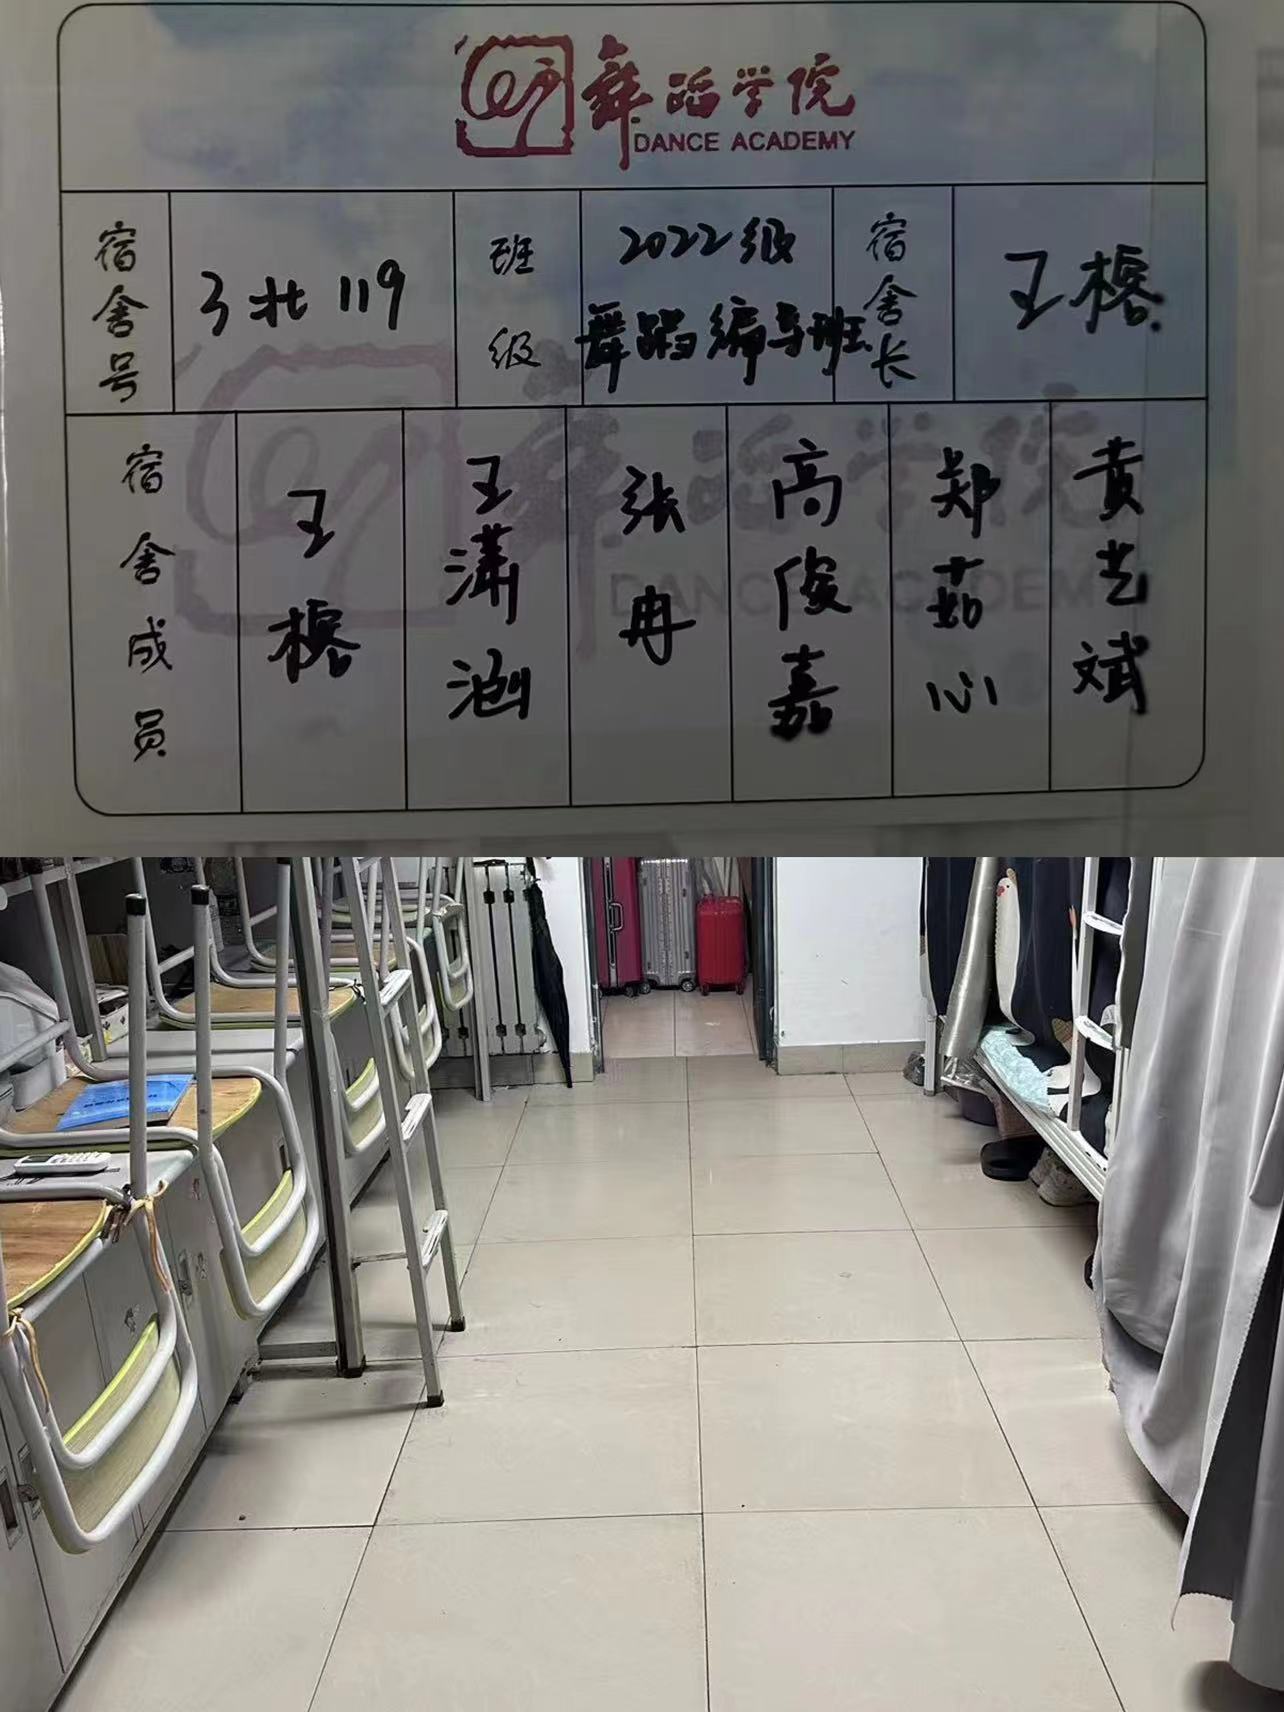 舞蹈学院
DANCE ACADEMY
宿舍号
3北119
班级
2022级
舞蹈编导班
宿舍长
王榕
宿舍成员
王榕
王潇涵
张冉
高俊嘉
郑茹心
黄艺斌
舞蹈学院
DANCE ACADEMY